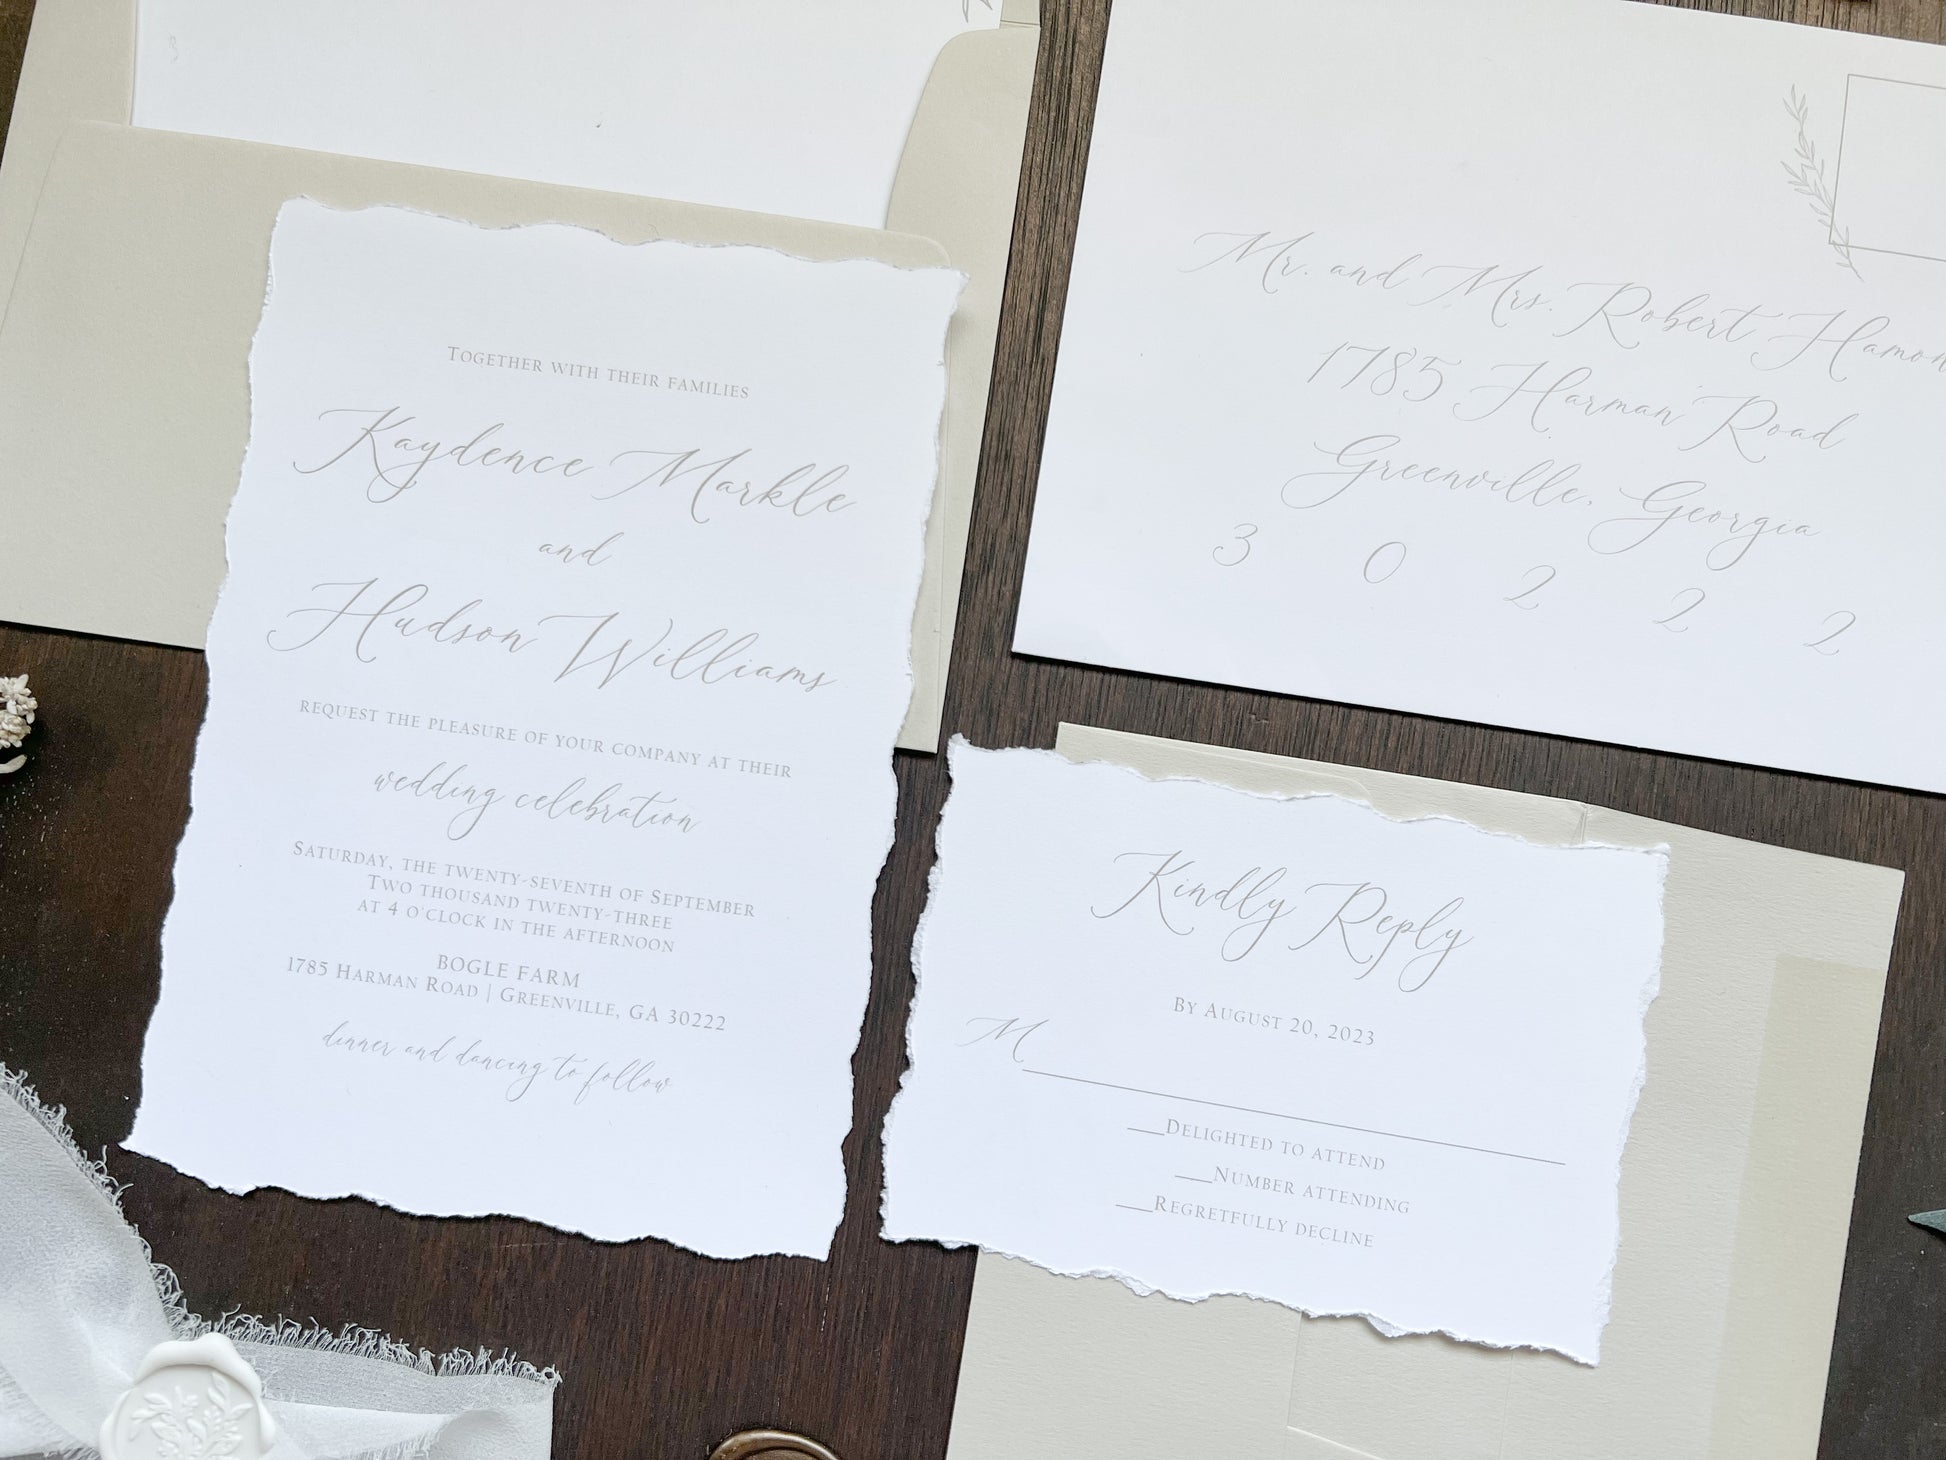 Together with their families
Kaydence Markle
and
Hudson Williams
request the pleasure of your company at their
wedding celebration
Saturday, the twenty-seventh of September
Two thousand twenty-three
at 4 o'clock in the afternoon
BOGLE FARM
1785 Harman Road | Greenville, GA 30222
dinner and dancing to follow
Mr. and Mrs. Robert Hamon
1785 Harman Road
Greenville, Georgia
3 0 2 2 2
Kindly Reply
By August 20, 2023
M
__Delighted to attend
__Number attending
__Regretfully decline